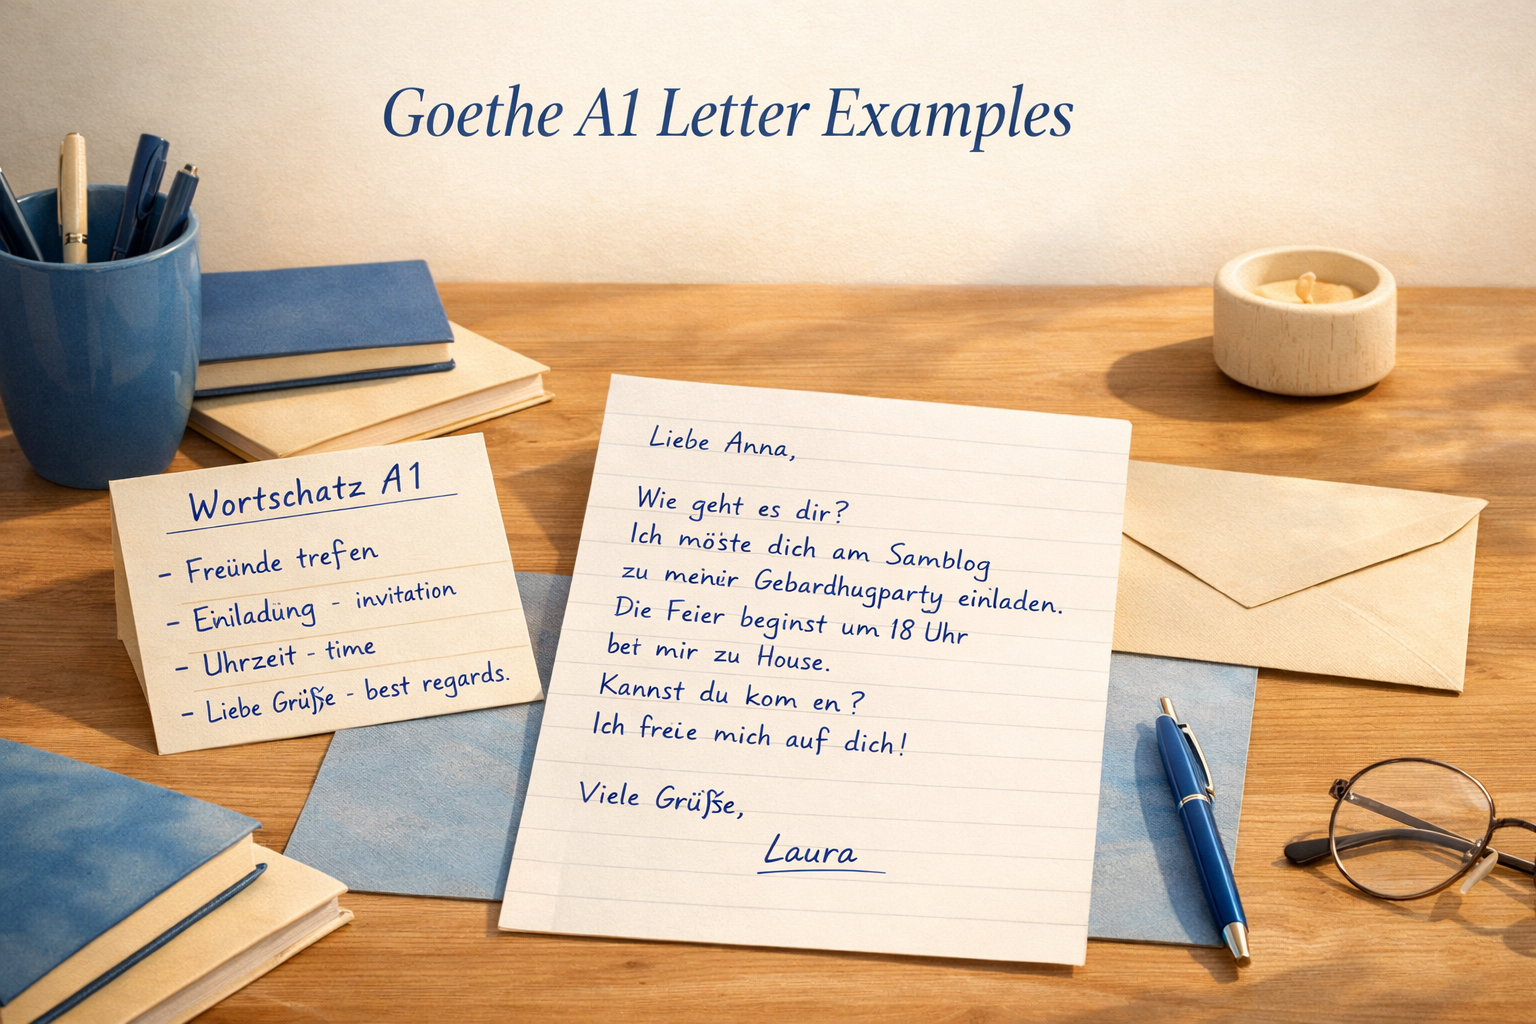 Goethe A1 Letter Examples
Wortschatz A1
- Freünde trefen
- Einiladüng - invitation
- Uhrzeit - time
- Liebe Grüße - best regards.
Liebe Anna,
Wie geht es dir?
Ich möste dich am Samblog
zu meinir Gebardhugparty einladen.
Die Feier beginst um 18 Uhr
bet mir zu House.
Kannst du kom en?
Ich freie mich auf dich!
Viele Grüßse,
Laura